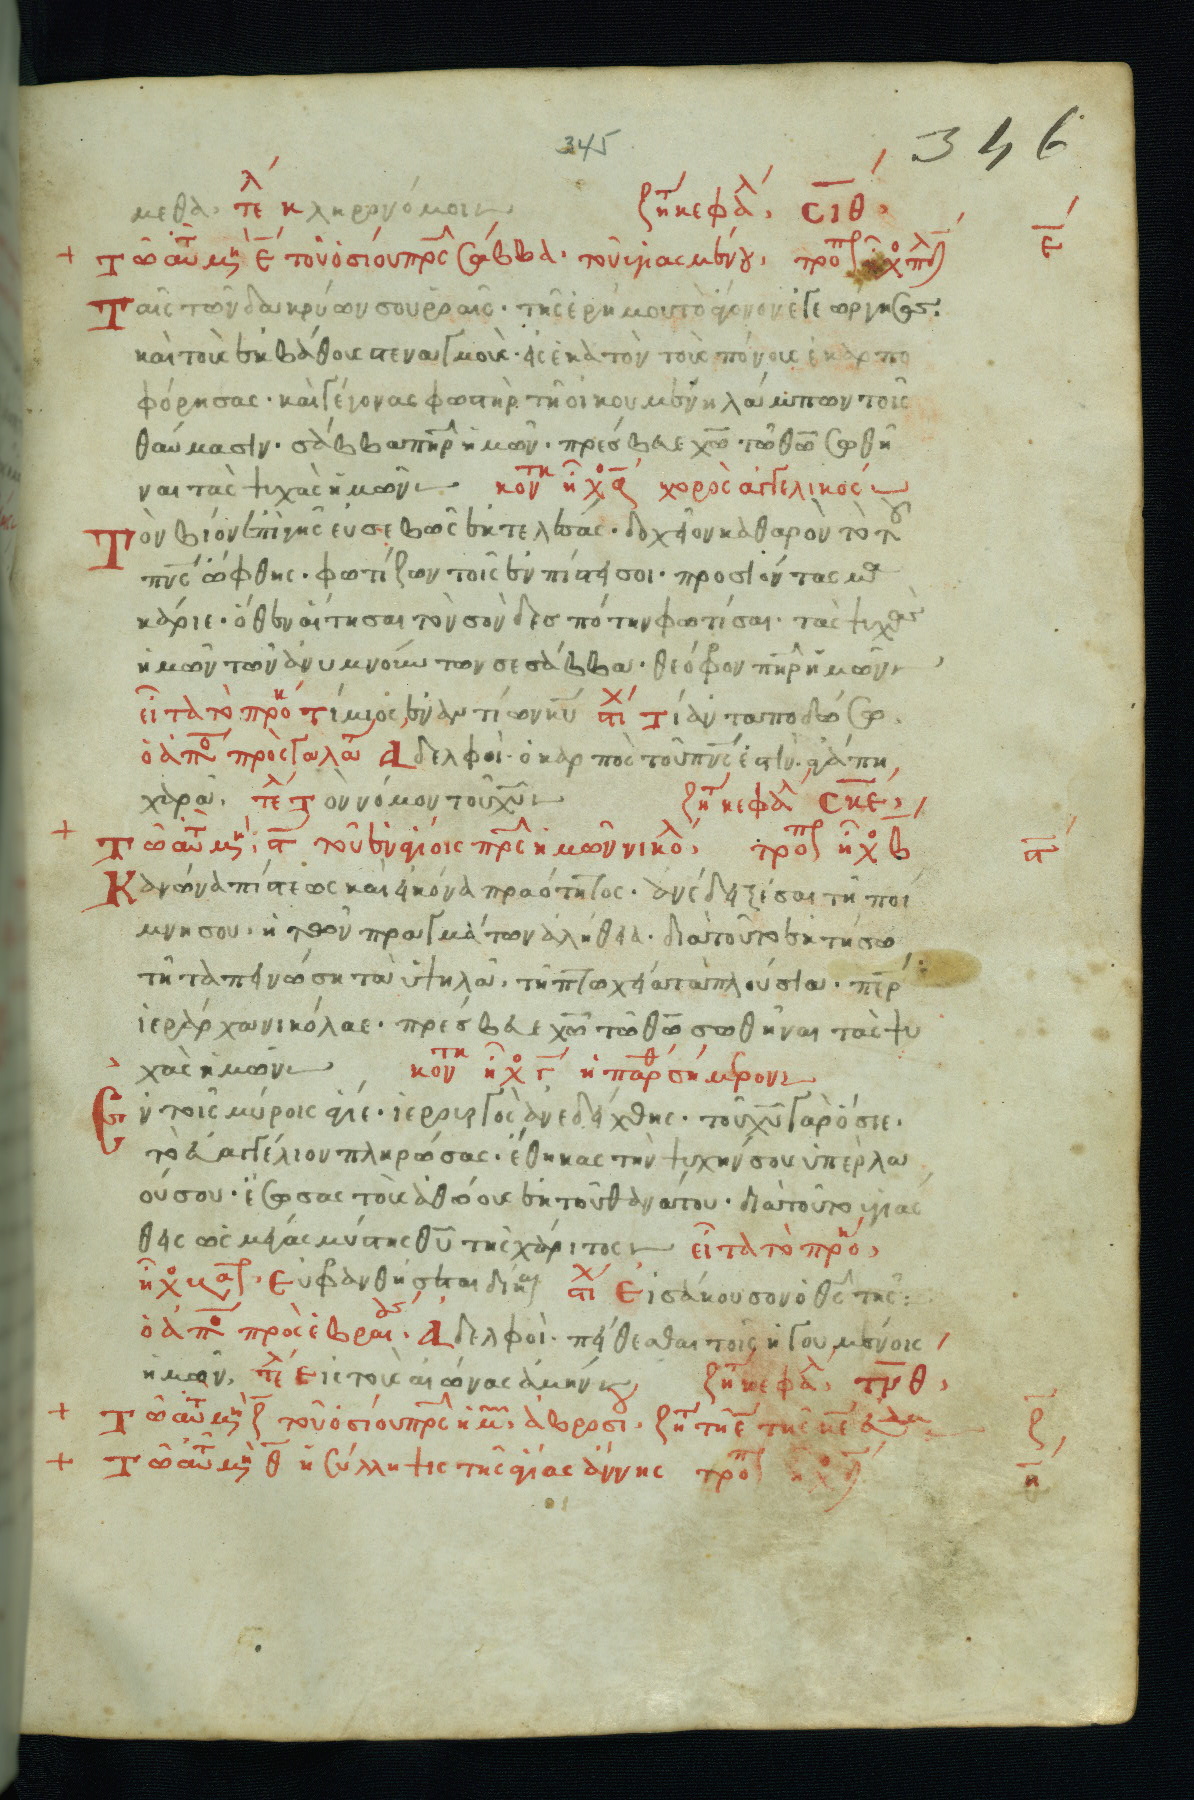 345
346
μεθα· τελ κληρονόμοι ζητ κεφαλ, σιθ·
+ Τῶ αὐτῶ μην ε τοῦ ὁσίου πρς σάββα· τοῦ ἡγιασμένου, τροπ ἦχος πλ δ ε
Ταῖς τῶν δακρύων σου ῥοαῖς· τῆς ἐρήμου τὸ ἄγονον ἐγεώργησας·
καὶ τοῖς ἐκ βάθους στεναγμοῖς· εἰς ἑκατὸν τοὺς πόνους ἐκαρπο
φόρησας· καὶ γέγονας φωστὴρ τῆ οἰκουμένη λάμπων τοῖς
θαύμασιν· σάββα πηρ ἡμῶν· πρέσβευε χω τῶ θω σωθῆ
ναι τὰς ψυχὰς ἡμῶν κοντ ἦχος χορὸς ἀγγελικός
Τὸν βίον ἐπὶ γῆς εὐσεβῶς ἐκτελέσας· δοχεῖον καθαρὸν τοῦ
πνς ὤφθης· φωτίζων τοῖς ἐν πίστει σοι· προσιόντας μα
κάριε· ὅθεν αἴτησαι τὸν σὸν δεσπότην φωτίσαι· τὰς ψυχὰς
ἡμῶν τῶν ἀνυμνούντων σε σάββα· θεόφρον πηρ ἡμῶν
εἶτα τὸ προκ Τίμιος ἐναντίον κυ στι Τί ἀνταποδώσω
ὁ ἀπο πρὸς γαλα Ἀδελφοὶ· ὁ καρπὸς τοῦ πνς ἐστὶν· ἀγάπη,
χαρά· τελ Τὸν νόμον τοῦ χυ ζητ κεφαλ σκε,
+ Τῶ αὐτῶ μην ϛ τοῦ ἐν ἁγίοις πρς ἡμῶν νικολ, τροπ ἦχος β ϛ
Κανόνα πίστεως καὶ εἰκόνα πραότητος· ἀνέδειξέ σαι τῆ ποί
μνη σου· ἡ τῶν πραγμάτων ἀλήθεια· διὰ τοῦτο ἐκτήσω
τῆ ταπεινώση τὰ ὑψηλά· τῆ πτωχεία τὰ πλούσια· περ
ἱεράρχα νικόλαε· πρέσβευε χω τῶ θω σωθῆναι τὰς ψυ
χὰς ἡμῶν κοντ ἦχος γ ἡ παρθ σήμερον
Ἐν τοῖς μύροις ἅγιε· ἱερουργὸς ἀνεδείχθης· τοῦ χυ γὰρ ὅσιε·
τὸ εὐαγγέλιον πληρώσας· ἔθηκας τὴν ψυχήν σου ὑπὲρ λα
οῦ σου· ἔσωσας τοὺς ἀθώους ἐκ τοῦ θανάτου· διὰ τοῦτο ἡγιάσ
θης ὡς μέγας μύστης θυ τῆς χάριτος εἶτα τὸ προκ,
ἦχος Εὐφρανθήσεται δίκ στι Εἰσάκουσον ὁ θς τῆς
ὁ ἀπο πρὸς ἑβραι· Ἀδελφοὶ· πείθεσθαι τοῖς ἡγουμένοις
ἡμῶν, τελ Εἰς τοὺς αἰῶνας ἀμήν ζητ κεφαλ, τλθ,
+ Τῶ αὐτῶ μην ζ τοῦ ὁσίου πρς ἡμ ἀβροσι· ζητ τῆ ε τῆς κε ζ
+ Τῶ αὐτῶ μην θ ἡ σύλληψις τῆς ἁγίας ἄννης τροπ ἦχος η